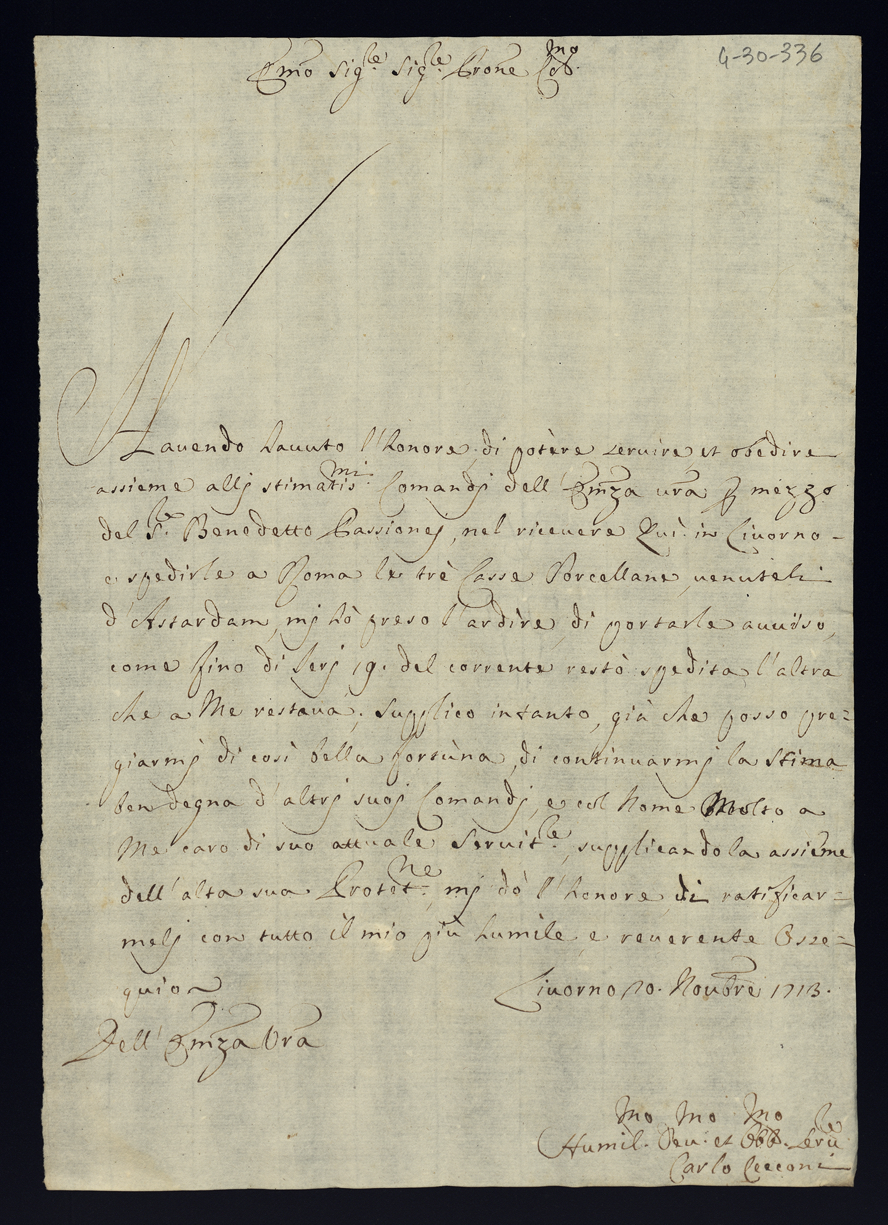 4-30-336
Emo Sigre Sigre Prone Colmo
Havendo havuto l'honore di potère servire et obedire
assieme allj stimatismi Comandj dell'Emza vra p mezzo
del Sr. Benedetto Passionej, nel ricevere Quì in Livorno
e spedirle a Roma le trè Casse Porcellane venuteli
d'Astardam, mj hò preso l'ardìre di portarle avviso,
come fino di Jerj 19. del corrente restò spedita l'altra
che a Me restava; supplico intanto, già che posso pre=
giarmj di così bella fortùna, di continuarmj la stima
ben degna d'altrj suoj Comandj, e col Nome Molto a
Me caro di suo attuale Servitle, supplicandola assieme
dell'alta sua Protetne, mj dò l'honore di ratificar=
melj con tutto il mio più humile e reverente Osse=
quio
Livorno 20. Novbre 1713.
Dell'Emza Vra
Humil.mo Dev.mo et Obb.mo Serv
Carlo Cecconi